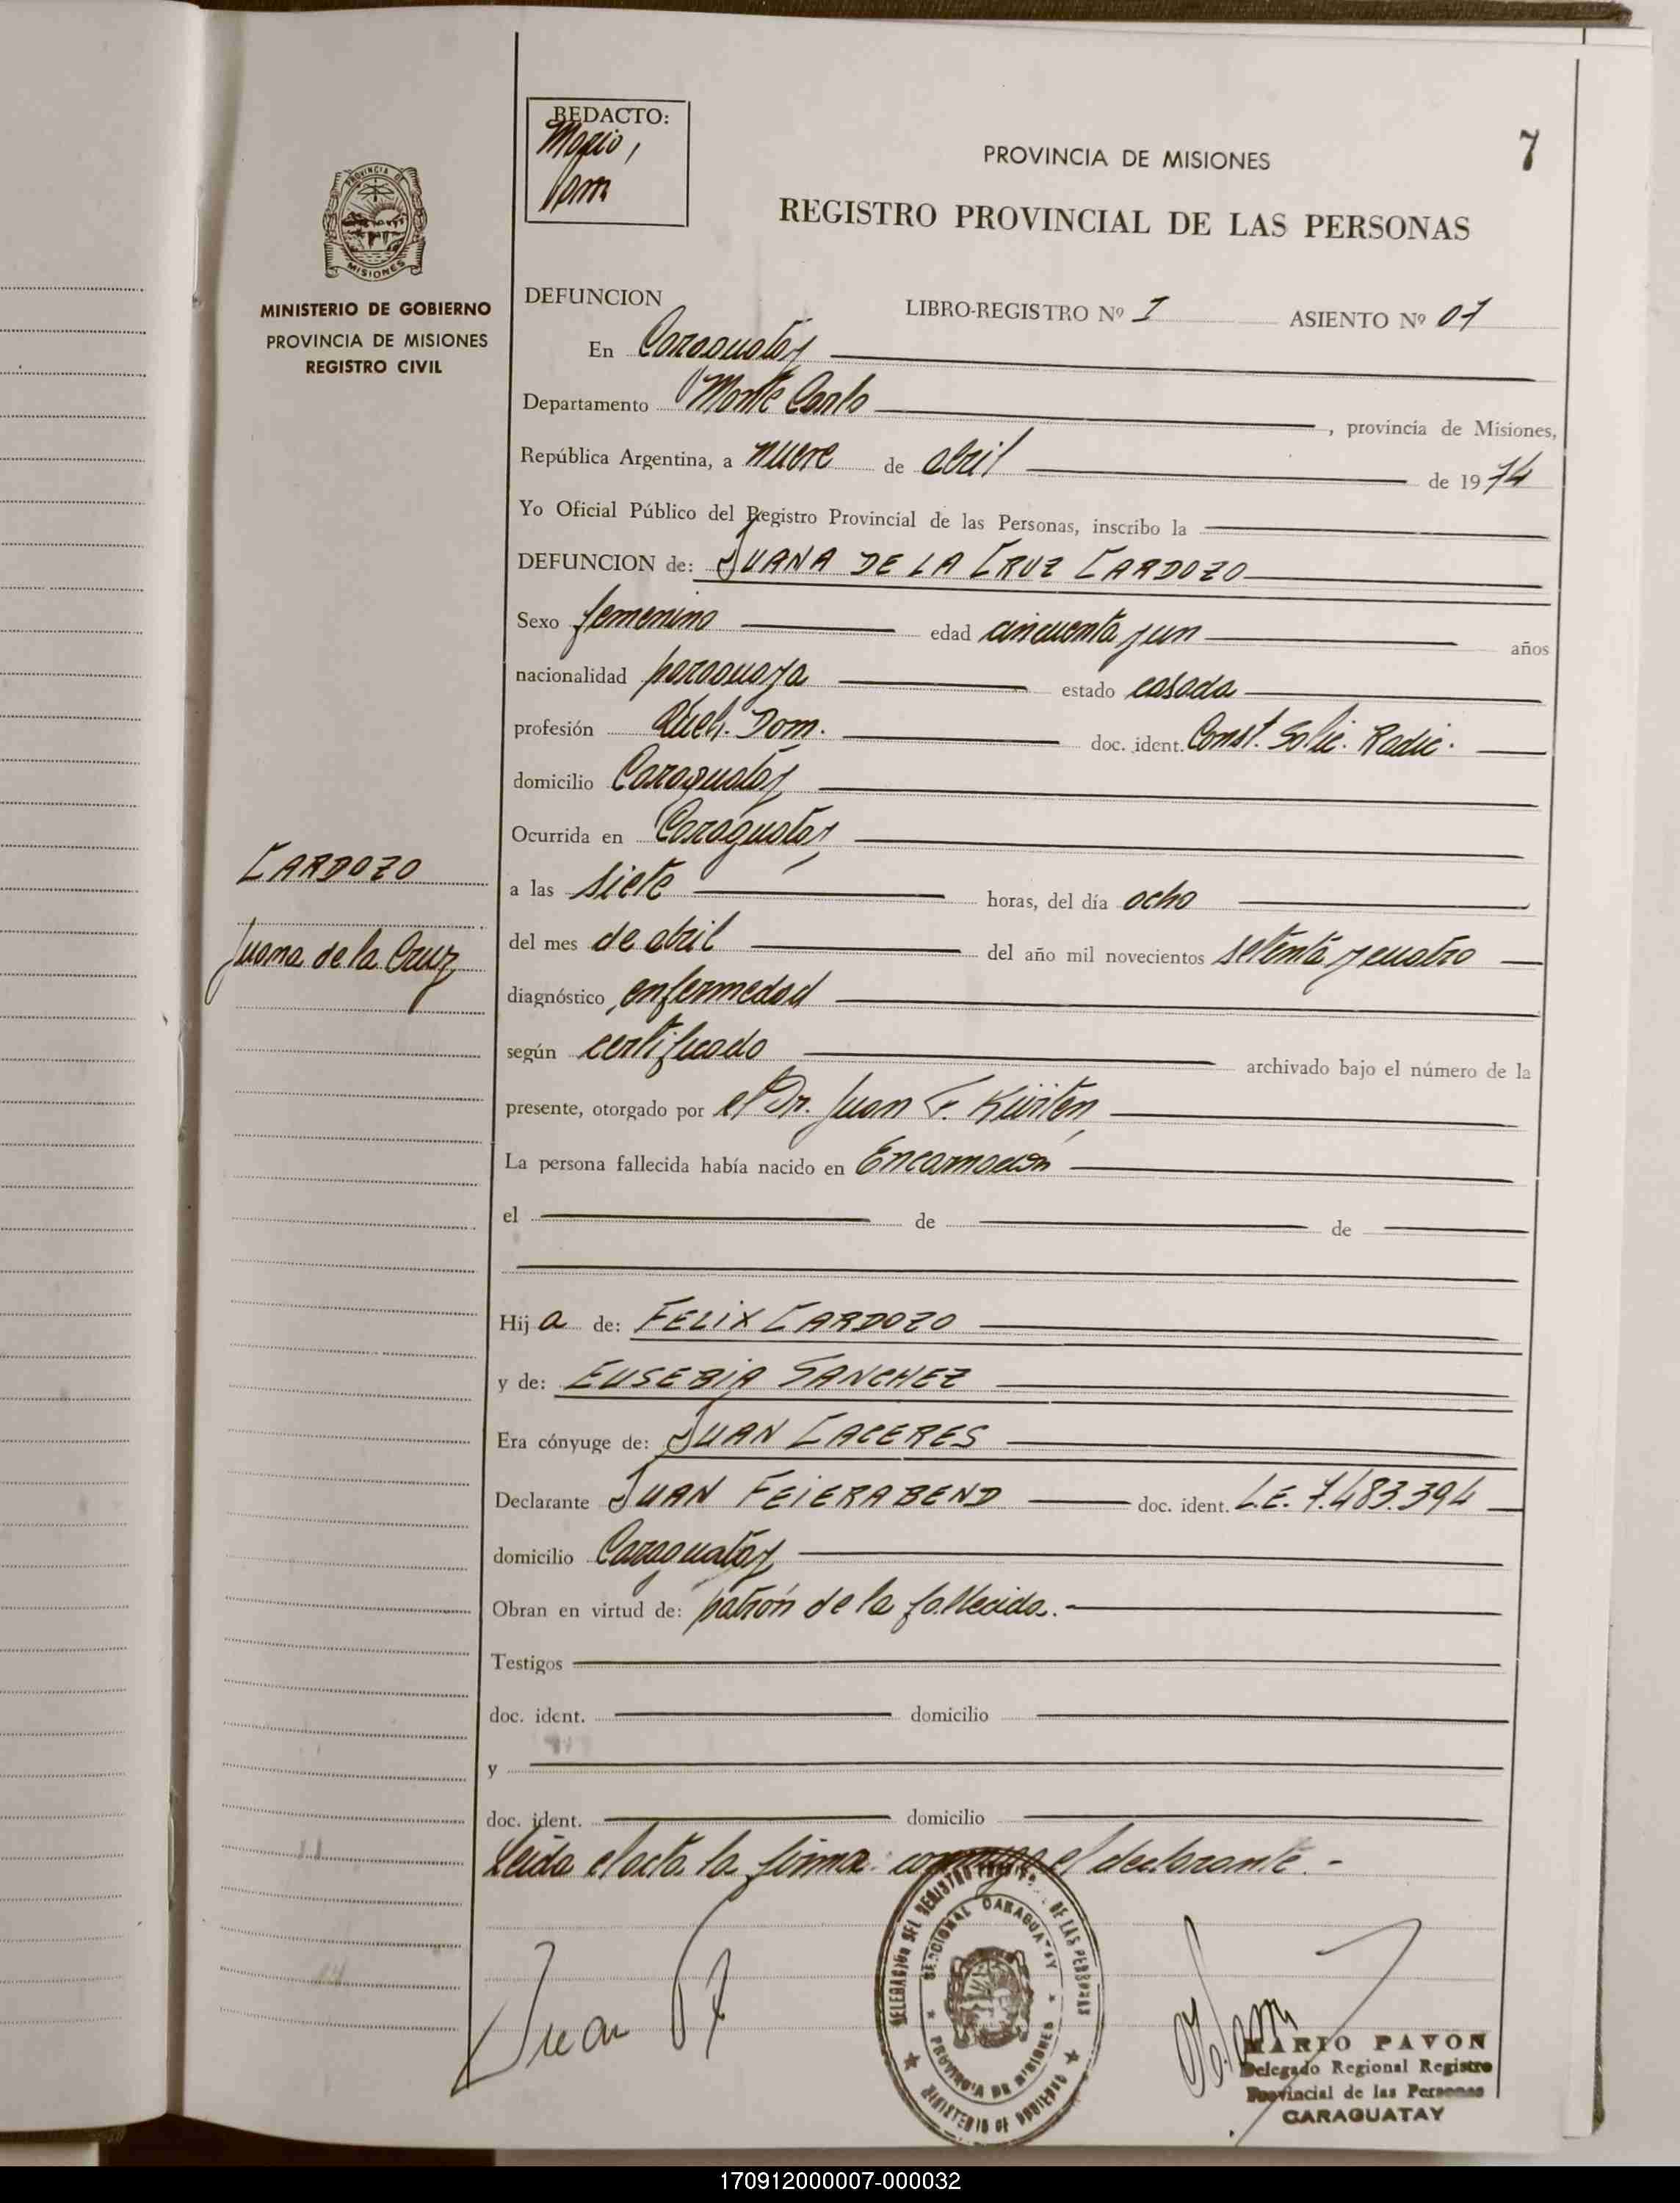 7
REDACTO:
Mario,
PROVINCIA DE MISIONES
REGISTRO PROVINCIAL DE LAS PERSONAS
PROVINCIA DE
MISIONES
MINISTERIO DE GOBIERNO
PROVINCIA DE MISIONES
REGISTRO CIVIL
DEFUNCION LIBRO-REGISTRO Nº I ASIENTO Nº 01
En Caraguatay
Departamento Monte Carlo, provincia de Misiones,
República Argentina, a nueve de abril de 1974
Yo Oficial Público del Registro Provincial de las Personas, inscribo la
DEFUNCION de: JUANA DE LA CRUZ CARDOZO
Sexo femenino edad cincuenta y un años
nacionalidad paraguaya estado casada
profesión Queh. Dom. doc. ident. Const. Solic. Radic.
domicilio Caraguatay
Ocurrida en Caraguatay
CARDOZO
Juana de la Cruz
a las siete horas, del día ocho
del mes de abril del año mil novecientos setenta y cuatro
diagnóstico enfermedad
según certificado archivado bajo el número de la
presente, otorgado por el Dr. Juan F. Küiten
La persona fallecida había nacido en Encarnación
el de de
Hija de: FELIX CARDOZO
y de: EUSEBIA SANCHEZ
Era cónyuge de: JUAN CACERES
Declarante JUAN FEIERABEND doc. ident. L.E. 7.483.394
domicilio Caraguatay
Obran en virtud de: patrón de la fallecida.-
Testigos
doc. ident. domicilio
y
doc. ident. domicilio
Leída el acta la firma conmigo el declarante.-
DELEGACIÓN DEL REGISTRO PROVINCIAL DE LAS PERSONAS
SECCIONAL CARAGUATAY
PROVINCIA DE MISIONES
MINISTERIO DE GOBIERNO
Juan
MARIO PAVON
Delegado Regional Registro
Provincial de las Personas
CARAGUATAY
170912000007-000032